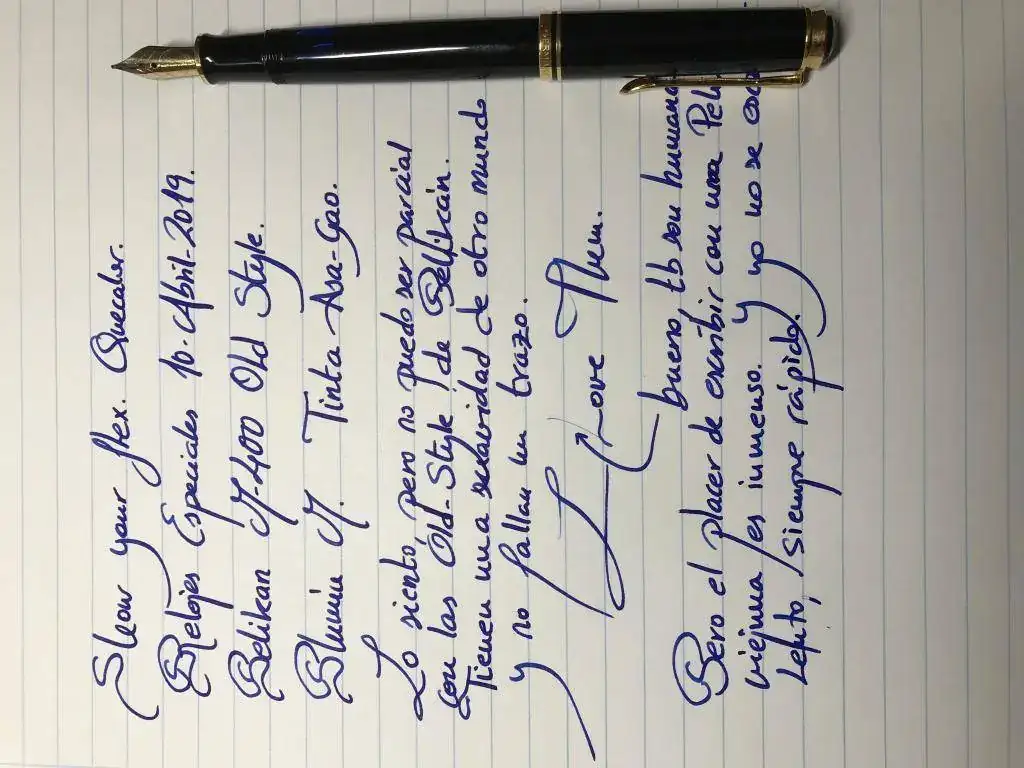 Show your flex. Quecaber.
Relojes Especiales 10-Abril-2019.
Pelikan M-400 Old Style.
Plumin M. Tinta Asa-Gao.
Lo siento, pero no puedo ser parcial
con las Old-Style de Pelikan.
Tienen una suavidad de otro mundo
y no fallan un trazo.
I Love Them.
bueno tb son humanas
Pero el placer de escribir con una
viejuna es inmenso. y yo no se
Lento, siempre rápido.